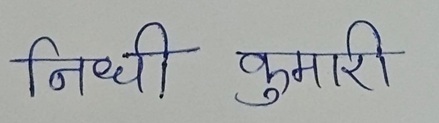 निधी कुमारी